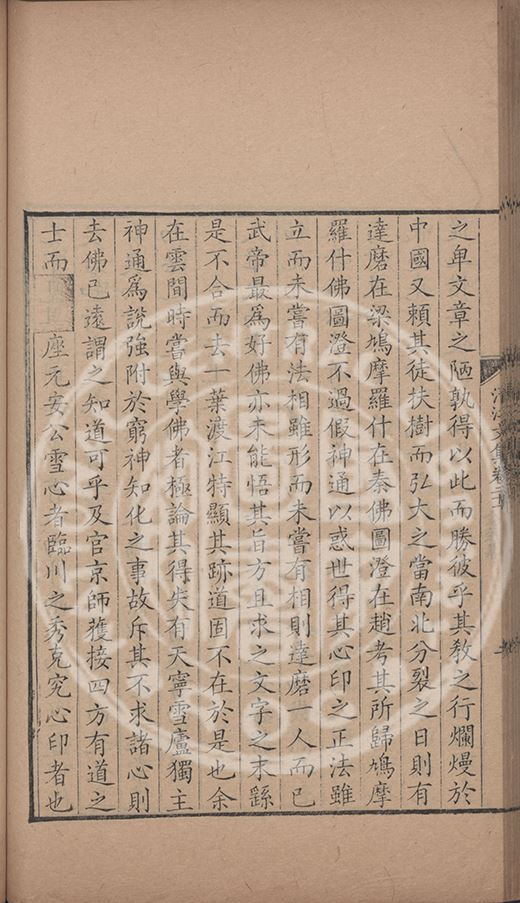 之卑文章之陋孰得以此而勝彼乎其敎之行爛熳於
中國又賴其徒扶樹而弘大之當南北分裂之日則有
達磨在梁鳩摩羅什在秦佛圖澄在趙考其所歸鳩摩
羅什佛圖澄不過假神通以惑世得其心印之正法雖
立而未嘗有法相雖形而未嘗有相則達磨一人而已
武帝最爲好佛亦未能悟其旨方且求之文字之末繇
是不合而去一葉渡江特顯其跡道固不在於是也余
在雲間時嘗與學佛者極論其得失有天寧雪廬獨主
神通爲說強附於窮神知化之事故斥其不求諸心則
去佛已遠謂之知道可乎及官京師獲接四方有道之
士而座元安公雪心者臨川之秀克究心印者也